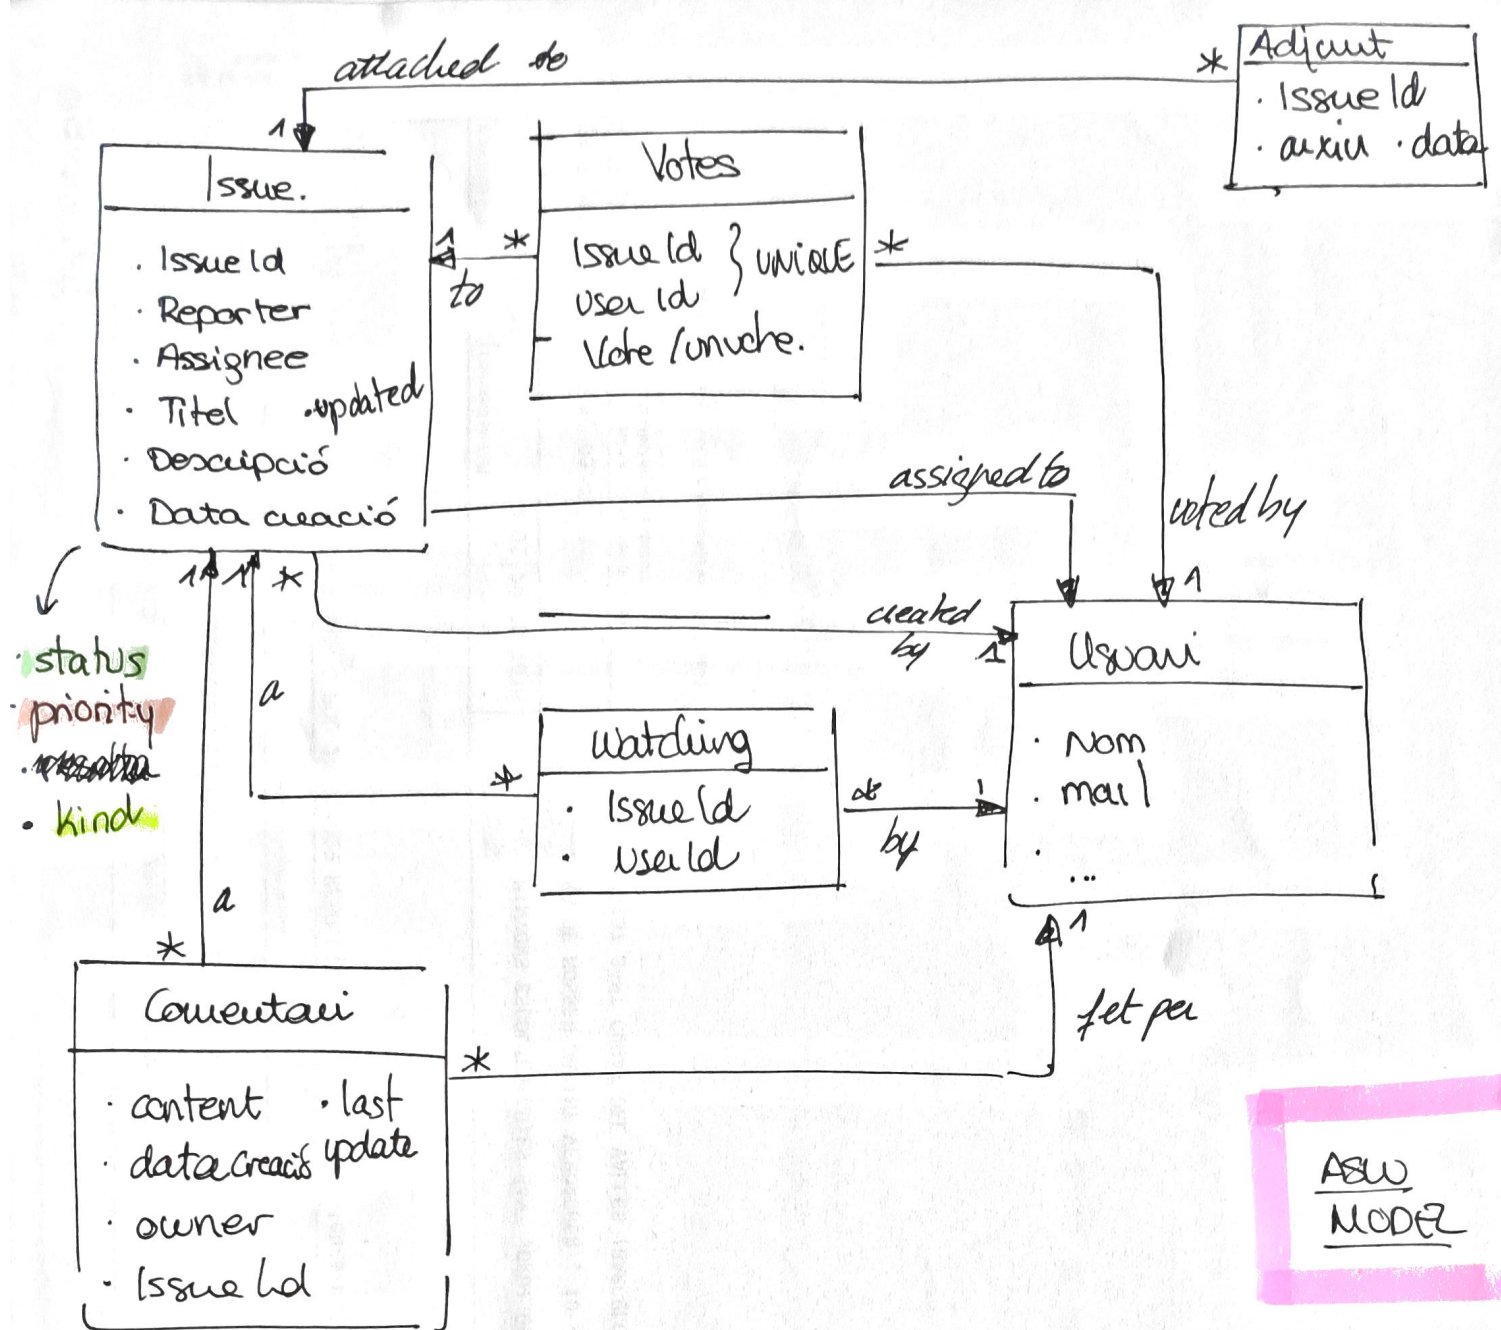 attached to
*
Adjunt
· IssueId
· arxiu · data
1
Issue.
· IssueId
· Reporter
· Assignee
· Titel · updated
· Descripció
· Data creació
Votes
IssueId } UNIQUE
userId
Vote/unvote.
1
*
to
*
assigned to
voted by
1
1
1
*
created
by
1
· status
· priority
· kind
a
a
*
Watching
· IssueId
· userId
*
1
by
Usuari
· Nom
· mail
·
...
1
fet per
*
Comentari
*
· content · last
· data creació update
· owner
· IssueId
ASW
MODEL